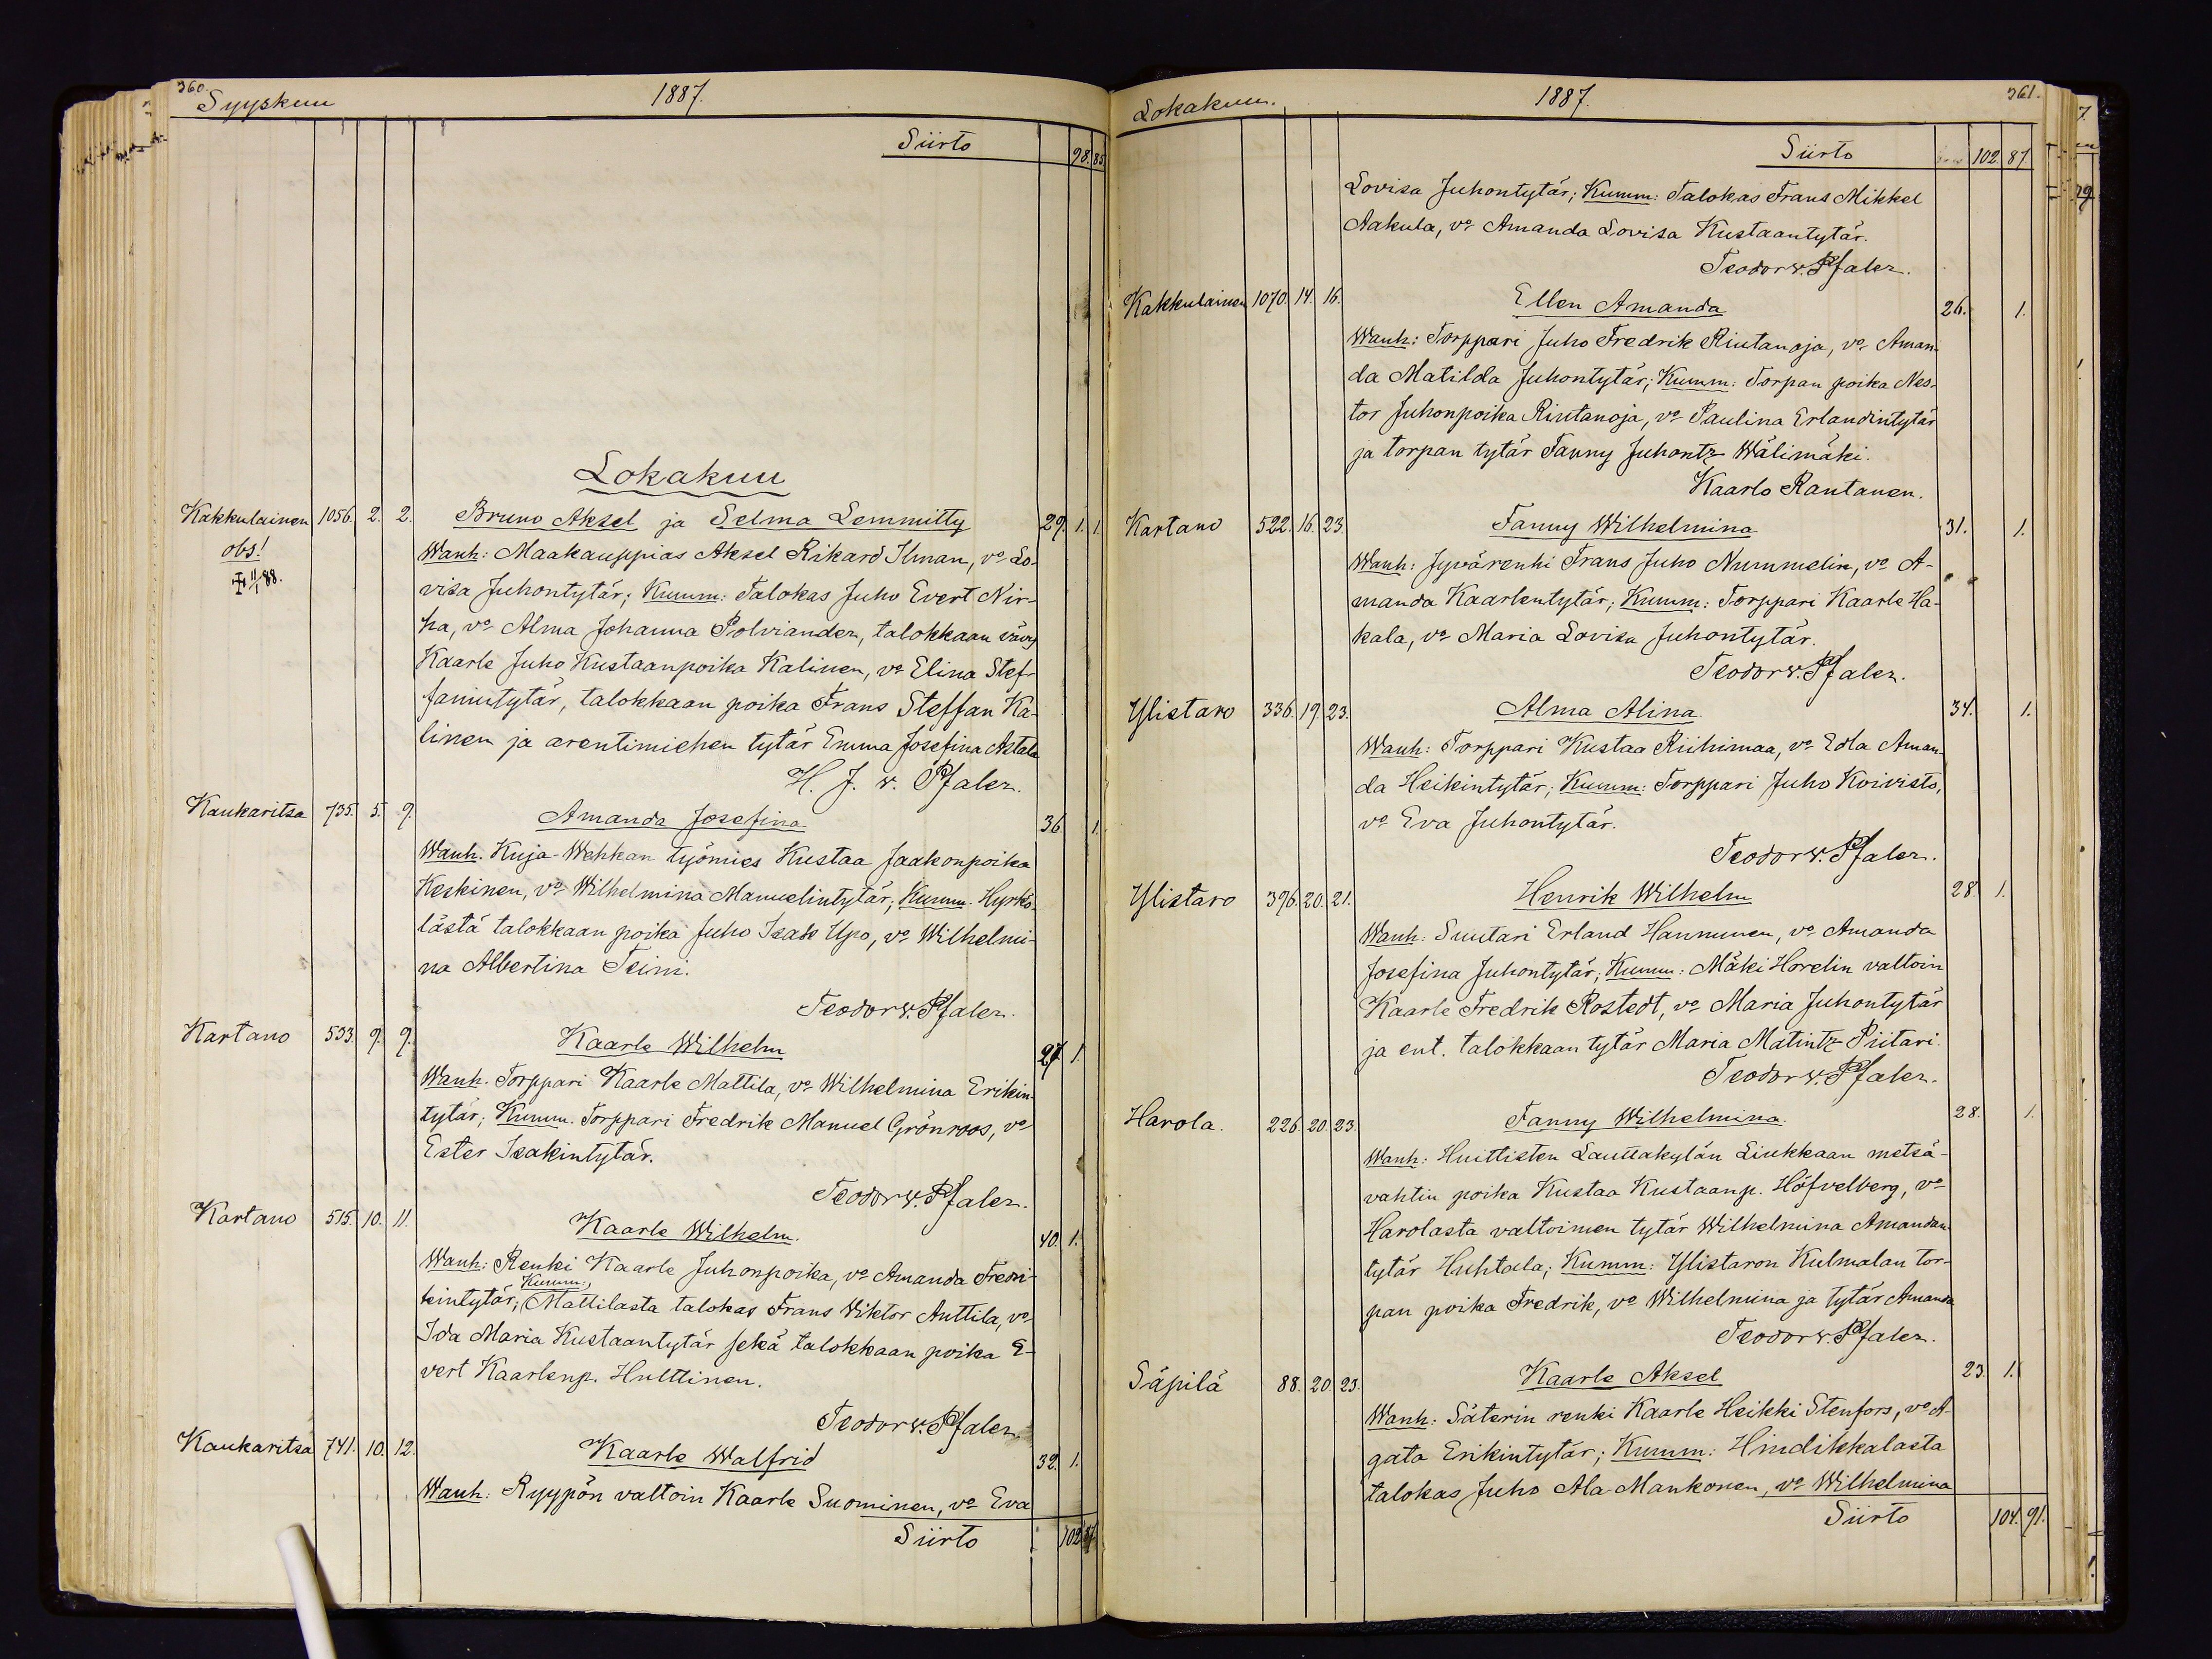 360.
Syyskuu 1887.
Siirto 98. 85.
Lokakuu
Kakkulainen 1056. 2. 2. Bruno Aksel ja Selma Lemmitty 29. 1. 1.
obs! Wanh: Maakauppias Aksel Rikard Ilman, vo Lo-
11/1 88. visa Juhontytär; Kumm: Talokas Juho Evert Nir-
ha, vo Alma Johanna Polviander, talokkaan vävy
Kaarle Juho Kustaanpoika Kalinen, vo Elina Stef-
fanintytär, talokkaan poika Frans Steffan Ka-
linen ja arentimiehen tytär Emma Josefina Astala
H. J. v. Pfaler.
Kaukaritsa 735. 5. 9. Amanda Josefina 36. 1.
Wanh. Kuja-Wehkan työmies Kustaa Jaakonpoika
Keskinen, vo Wilhelmina Manuelintytär; Kumm. Hyrkö-
lästä talokkaan poika Juho Isak Upo, vo Wilhelmi-
na Albertina Teini.
Teodor v. Pfaler.
Kartano 533. 9. 9. Kaarle Wilhelm 27. 1.
Wanh. Torppari Kaarle Mattila, vo Wilhelmina Erikin-
tytär; Kumm. Torppari Fredrik Manuel Grönroos, vo
Ester Isakintytär.
Teodor v. Pfaler.
Kartano 515. 10. 11. Kaarle Wilhelm. 40. 1.
Wanh: Renki Kaarle Juhonpoika, vo Amanda Fredri-
kintytär; Kumm: Mattilasta talokas Frans Viktor Anttila, vo
Ida Maria Kustaantytär sekä talokkaan poika E-
vert Kaarlenp. Hulttinen.
Teodor v. Pfaler
Kaukaritsa 741. 10. 12. Kaarle Walfrid 32. 1.
Wanh: Ryypön valtoin Kaarle Suominen, vo Eva
Siirto 102. 87.
361.
Lokakuu. 1887.
Siirto 102. 87.
Lovisa Juhontytär; Kumm: Talokas Frans Mikkel
Aakula, vo Amanda Lovisa Kustaantytär.
Teodor v. Pfaler.
Kakkulainen 1070. 14. 16. Ellen Amanda 26. 1.
Wanh: Torppari Juho Fredrik Rintanoja, vo Aman-
da Matilda Juhontytär; Kumm: Torpan poika Nes-
tor Juhonpoika Rintanoja, vo Paulina Erlandintytär
ja torpan tytär Fanny Juhontr Wälimäki.
Kaarlo Rantanen.
Kartano 522. 16. 23. Fanny Wilhelmina 31. 1.
Wanh: Jyvärenki Frans Juho Nummelin, vo A-
manda Kaarlentytär; Kumm: Torppari Kaarle Ha-
kala, vo Maria Lovisa Juhontytär.
Teodor v. Pfaler.
Ylistaro 336. 19. 23. Alma Alina. 34. 1.
Wanh: Torppari Kustaa Riihimaa, vo Edla Aman-
da Heikintytär; Kumm: Torppari Juho Koivisto,
vo Eva Juhontytär.
Teodor v. Pfaler.
Ylistaro 396. 20. 21. Henrik Wilhelm 28. 1.
Wanh: Suutari Erland Hannunen, vo Amanda
Josefina Juhontytär; Kumm: Mäki Horelin valtoin
Kaarle Fredrik Rostedt, vo Maria Juhontytär
ja ent. talokkaan tytär Maria Matintr Piitari.
Teodor v. Pfaler.
Harola. 226. 20. 23. Fanny Wilhelmina. 28. 1.
Wanh: Huittisten Lauttakylän Liukkaan metsä-
vahtin poika Kustaa Kustaanp. Höfvelberg, vo
Harolasta valtoimen tytär Wilhelmina Amandan-
tytär Huhtala; Kumm: Ylistaron Kulmalan tor-
pan poika Fredrik, vo Wilhelmina ja tytär Amanda
Teodor v. Pfaler.
Säpilä 88. 20. 23. Kaarle Aksel 23. 1.
Wanh: Säterin renki Kaarle Heikki Stenfors, vo A-
gata Erikintytär; Kumm: Hindikkalasta
talokas Juho Ala-Mankonen, vo Wilhelmina
Siirto 104. 91.